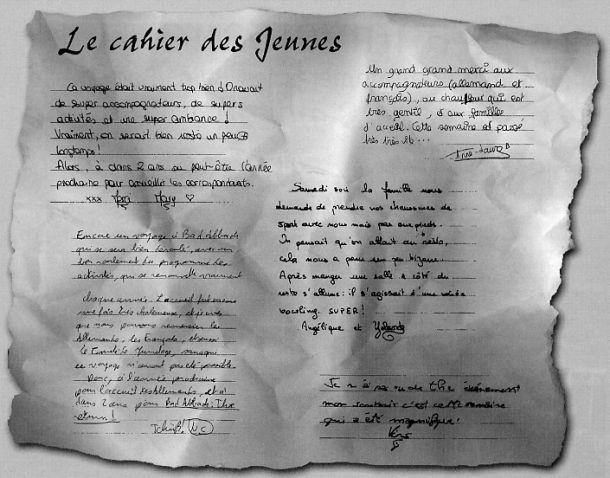 Le cahier des Jeunes
Ce voyage était vraiment trop bien! On avait
de super accompagnateurs, de supers
activités et une super ambiance!
Vraiment, on serait bien resté un peu
longtemps!
Alors, à dans 2 ans ou peut-être l'année
prochaine pour accueillir les correspondants.
xxx Mary
Un grand grand merci aux
accompagnateurs (allemand et
français), au chauffeur qui est
très gentil, et aux familles
d'accueil. Cette semaine est passé
très très vite...
Samedi soir la famille nous
demande de prendre nos chaussures de
sport avec nous mais pas aux pieds.
On pensait qu'on allait au resto,
cela nous a paru un peu bizarre.
Après manger une salle à côté du
resto s'allume: il s'agissait d'une soirée
bowling. SUPER!
Angélique et
Encore un voyage à Bad Abbach
qui sera bien
non seulement le programme
activités, qui se renouvelle vraiment
chaque année. L'accueil fut encore
une fois très chaleureux, et je crois
que nous pouvons remercier les
Allemands, les Français, et aussi
le Comité de Jumelage, sans qui
ce voyage n'aurait pas été possible.
Donc, à l'année prochaine
pour l'accueil des Allemands, et à
dans 2 ans pour Bad Abbach
the événement
mon souvenir c'est cette semaine
qui a été magnifique!